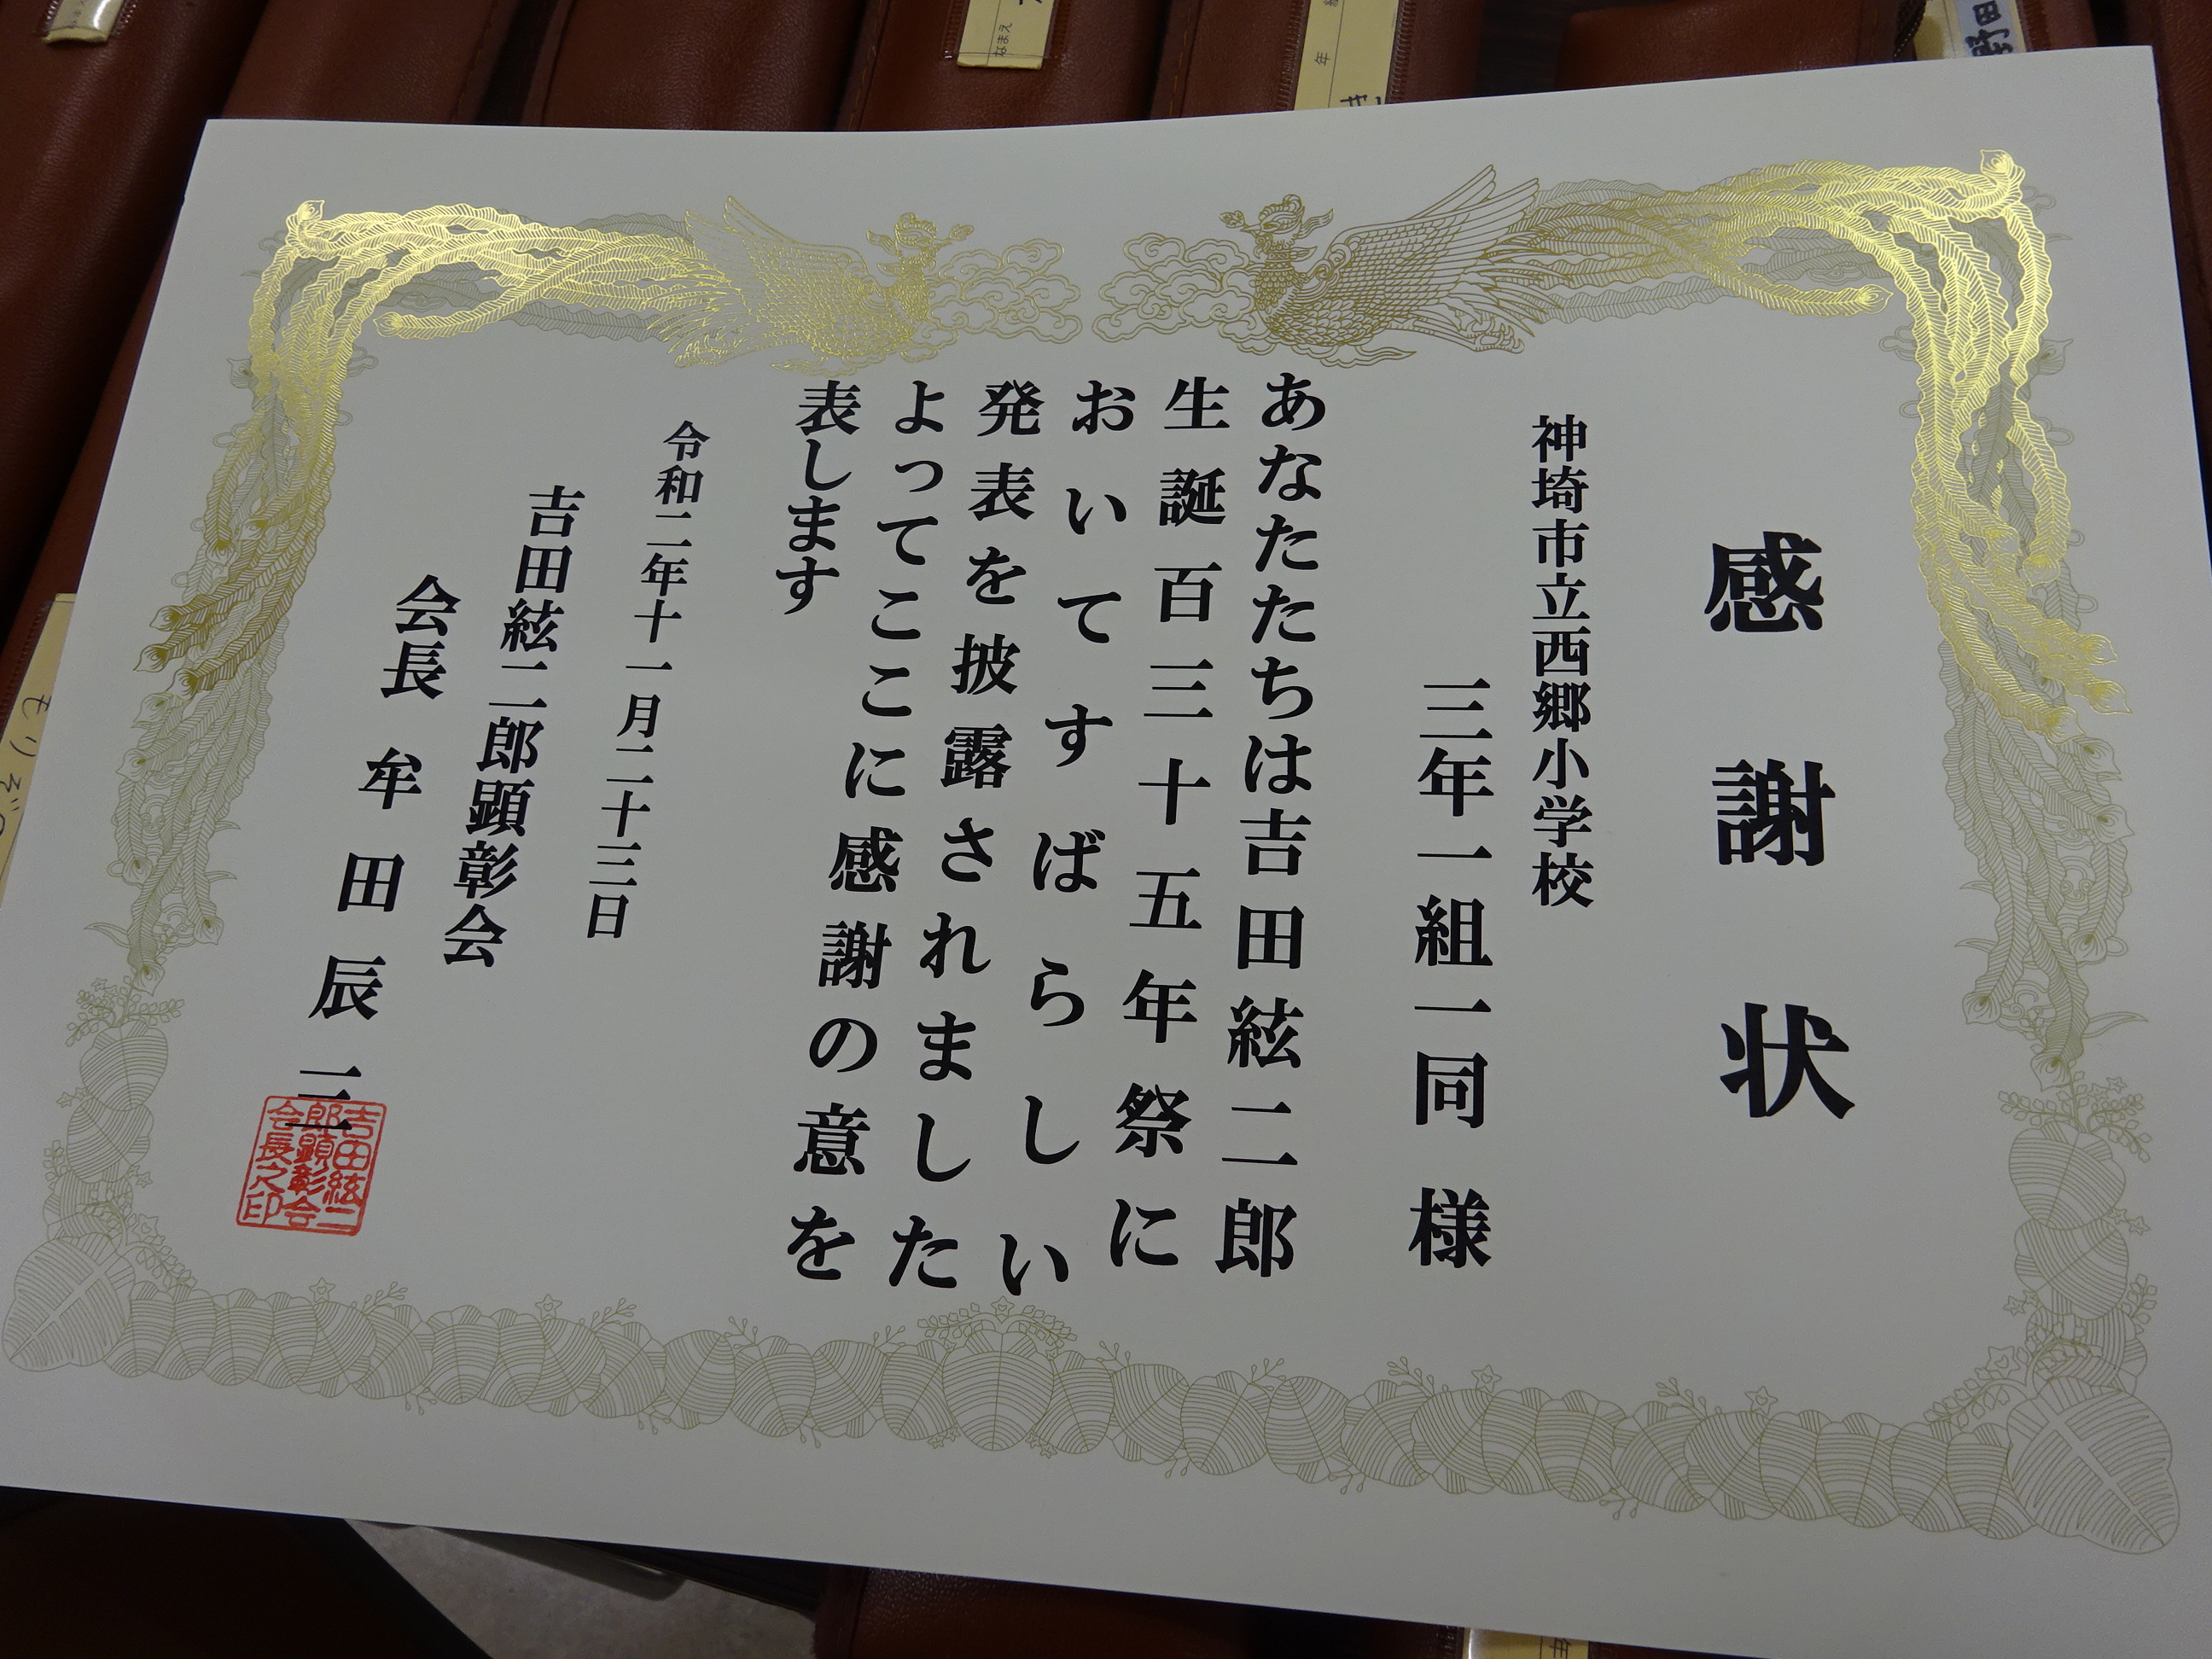 感謝状
神埼市立西郷小学校
三年一組一同 様
あなたたちは吉田絃二郎
生誕百三十五年祭に
おいてすばらしい
発表を披露されました
よってここに感謝の意を
表します
令和二年十一月二十三日
吉田絃二郎顕彰会
会長 牟田辰三
吉田絃二
郎顕彰会
会長之印
なまえ
年
野田
もりぞの
年